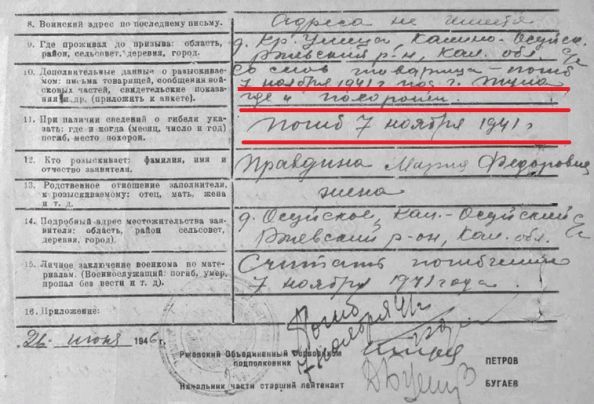 8. Воинский адрес по последнему письму. Адреса не имеется
9. Где проживал до призыва: область, район, сельсовет, деревня, город. д. Кр. Улица, Калино-Осуйск.
Ржевский р-н, Кал. обл. С/С
10. Дополнительные данные о разыскиваемом: письма товарищей, сообщения войсковых частей, свидетельские показания и др. (приложить к анкете). Со слов товарища - погиб
7 ноября 1941 под г.
где и похоронен.
11. При наличии сведений о гибели указать: где и когда (месяц, число и год) погиб, место похорон. Погиб 7 ноября 1941 г
12. Кто разыскивает: фамилия, имя и отчество заявителя. Правдина Мария Федоровна
13. Родственное отношение заполнителя, к разыскиваемому: отец, мать, жена и т. д. жена
14. Подробный адрес местожительства заявителя: область, район, сельсовет, деревня, город). д. Осуйское, Кал.-Осуйский С/С
Ржевский р-он, Кал. обл.
15. Личное заключение военкома по материалам. (Военнослужащий: погиб, умер, пропал без вести и т. д.). Считать погибшим
7 ноября 1941 года
16. Приложение:
26 июня 1946 г.
Погиб
7 ноября 41 г
Ржевский Объединенный Горвоенком
подполковник ПЕТРОВ
Начальник части старший лейтенант БУГАЕВ